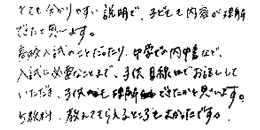 とても分かりやすい説明で、子どもも内容が理解
できたと思います。
高校入試のことだったり、中学での内申書など、
入試に必要なことまで、子供目線でお話しして
いただき、子供も理解できたかと思います。
5教科、教えてもらえるところもよかったです。